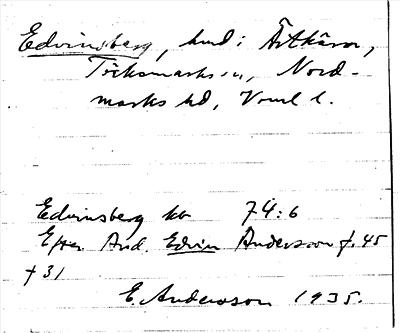 Edvinsberg, hmd i Årtkärn,
Töcksmarks sn, Nord-
marks hd, Vrml l.
Edvinsberg kb 74:6
Efter And. Edvin Andersson f. 45
† 31
E. Andersson 1935.